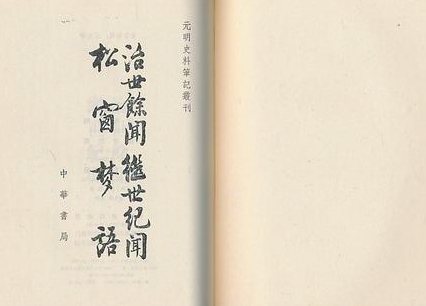 元明史料筆記叢刊
治世餘聞 繼世紀聞
松窗夢語
中華書局